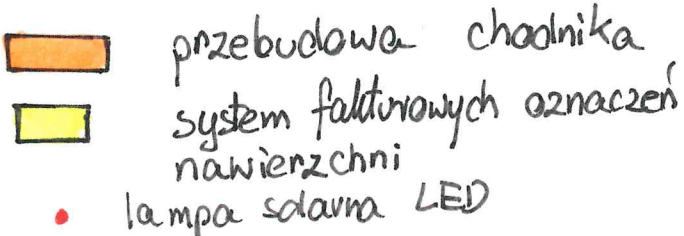 przebudowa chodnika
system fakturowych oznaczeń
nawierzchni
lampa solarna LED